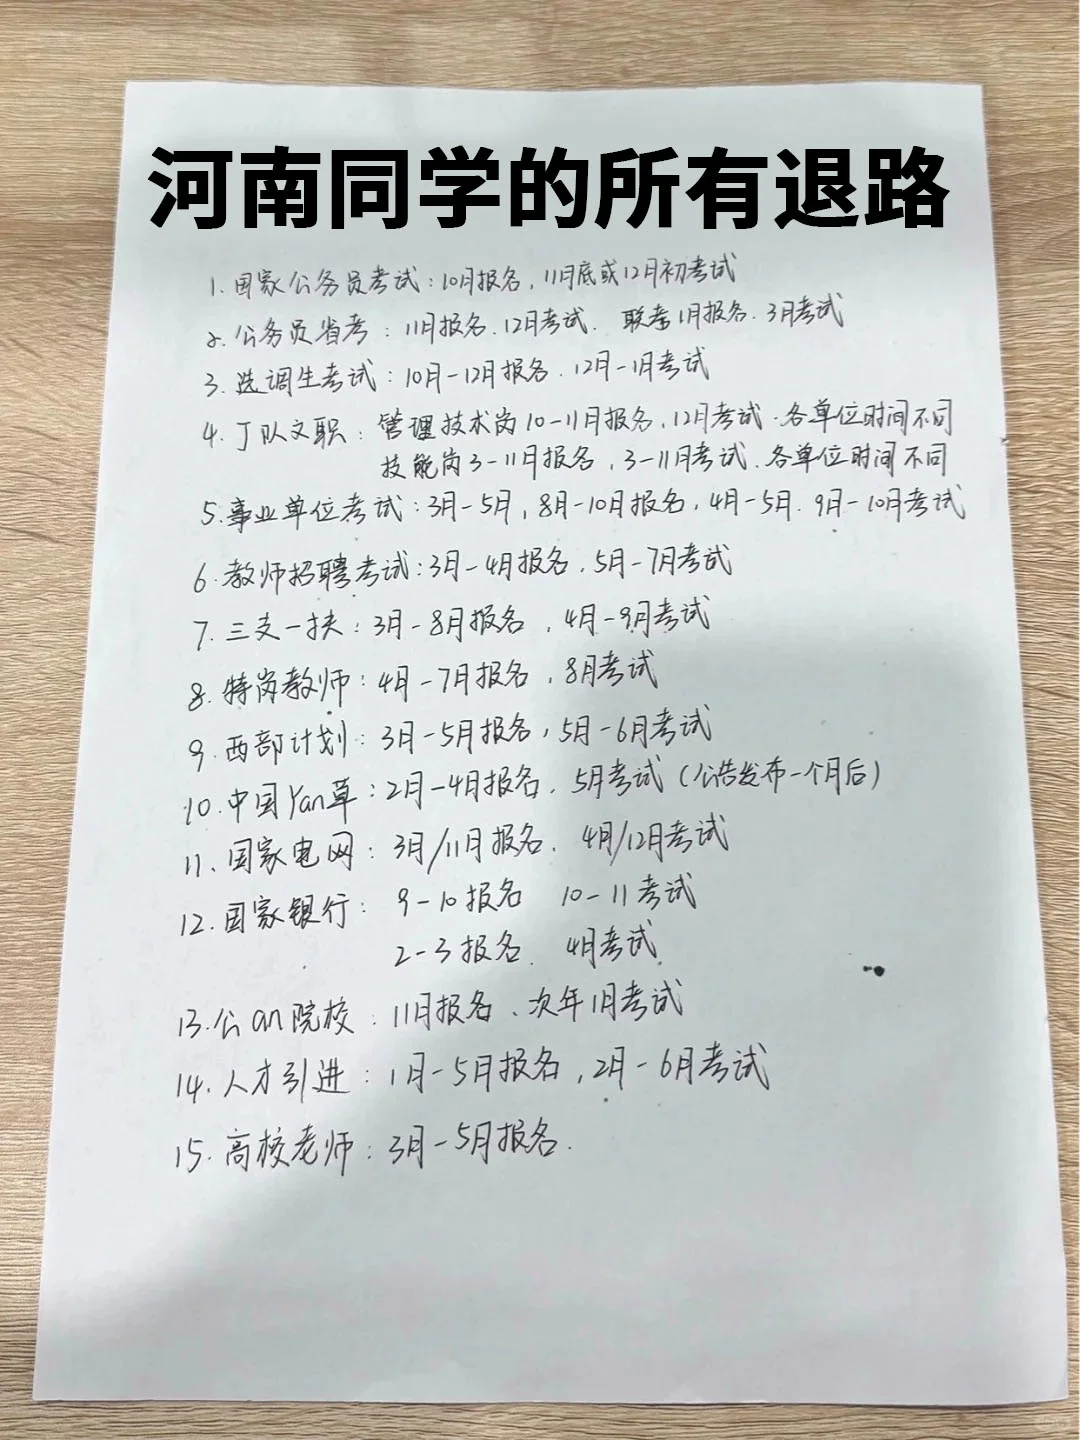 河南同学的所有退路
1. 国家公务员考试：10月报名，11月底或12月初考试
2. 公务员省考：11月报名、12月考试、联考1月报名、3月考试
3. 选调生考试：10月-12月报名、12月-1月考试
4. 丁队文职：管理技术岗10-11月报名，12月考试、各单位时间不同
技能岗3-11月报名，3-11月考试、各单位时间不同
5. 事业单位考试：3月-5月，8月-10月报名，4月-5月、9月-10月考试
6. 教师招聘考试：3月-4月报名、5月-7月考试
7. 三支一扶：3月-8月报名，4月-9月考试
8. 特岗教师：4月-7月报名，8月考试
9. 西部计划：3月-5月报名，5月-6月考试
10. 中国Yan草：2月-4月报名、5月考试（公告发布一个月后）
11. 国家电网：3月/11月报名、4月/12月考试
12. 国家银行：9-10报名 10-11考试
2-3报名、4月考试
13. 公an院校：11月报名、次年1月考试
14. 人才引进：1月-5月报名，2月-6月考试
15. 高校老师：3月-5月报名.